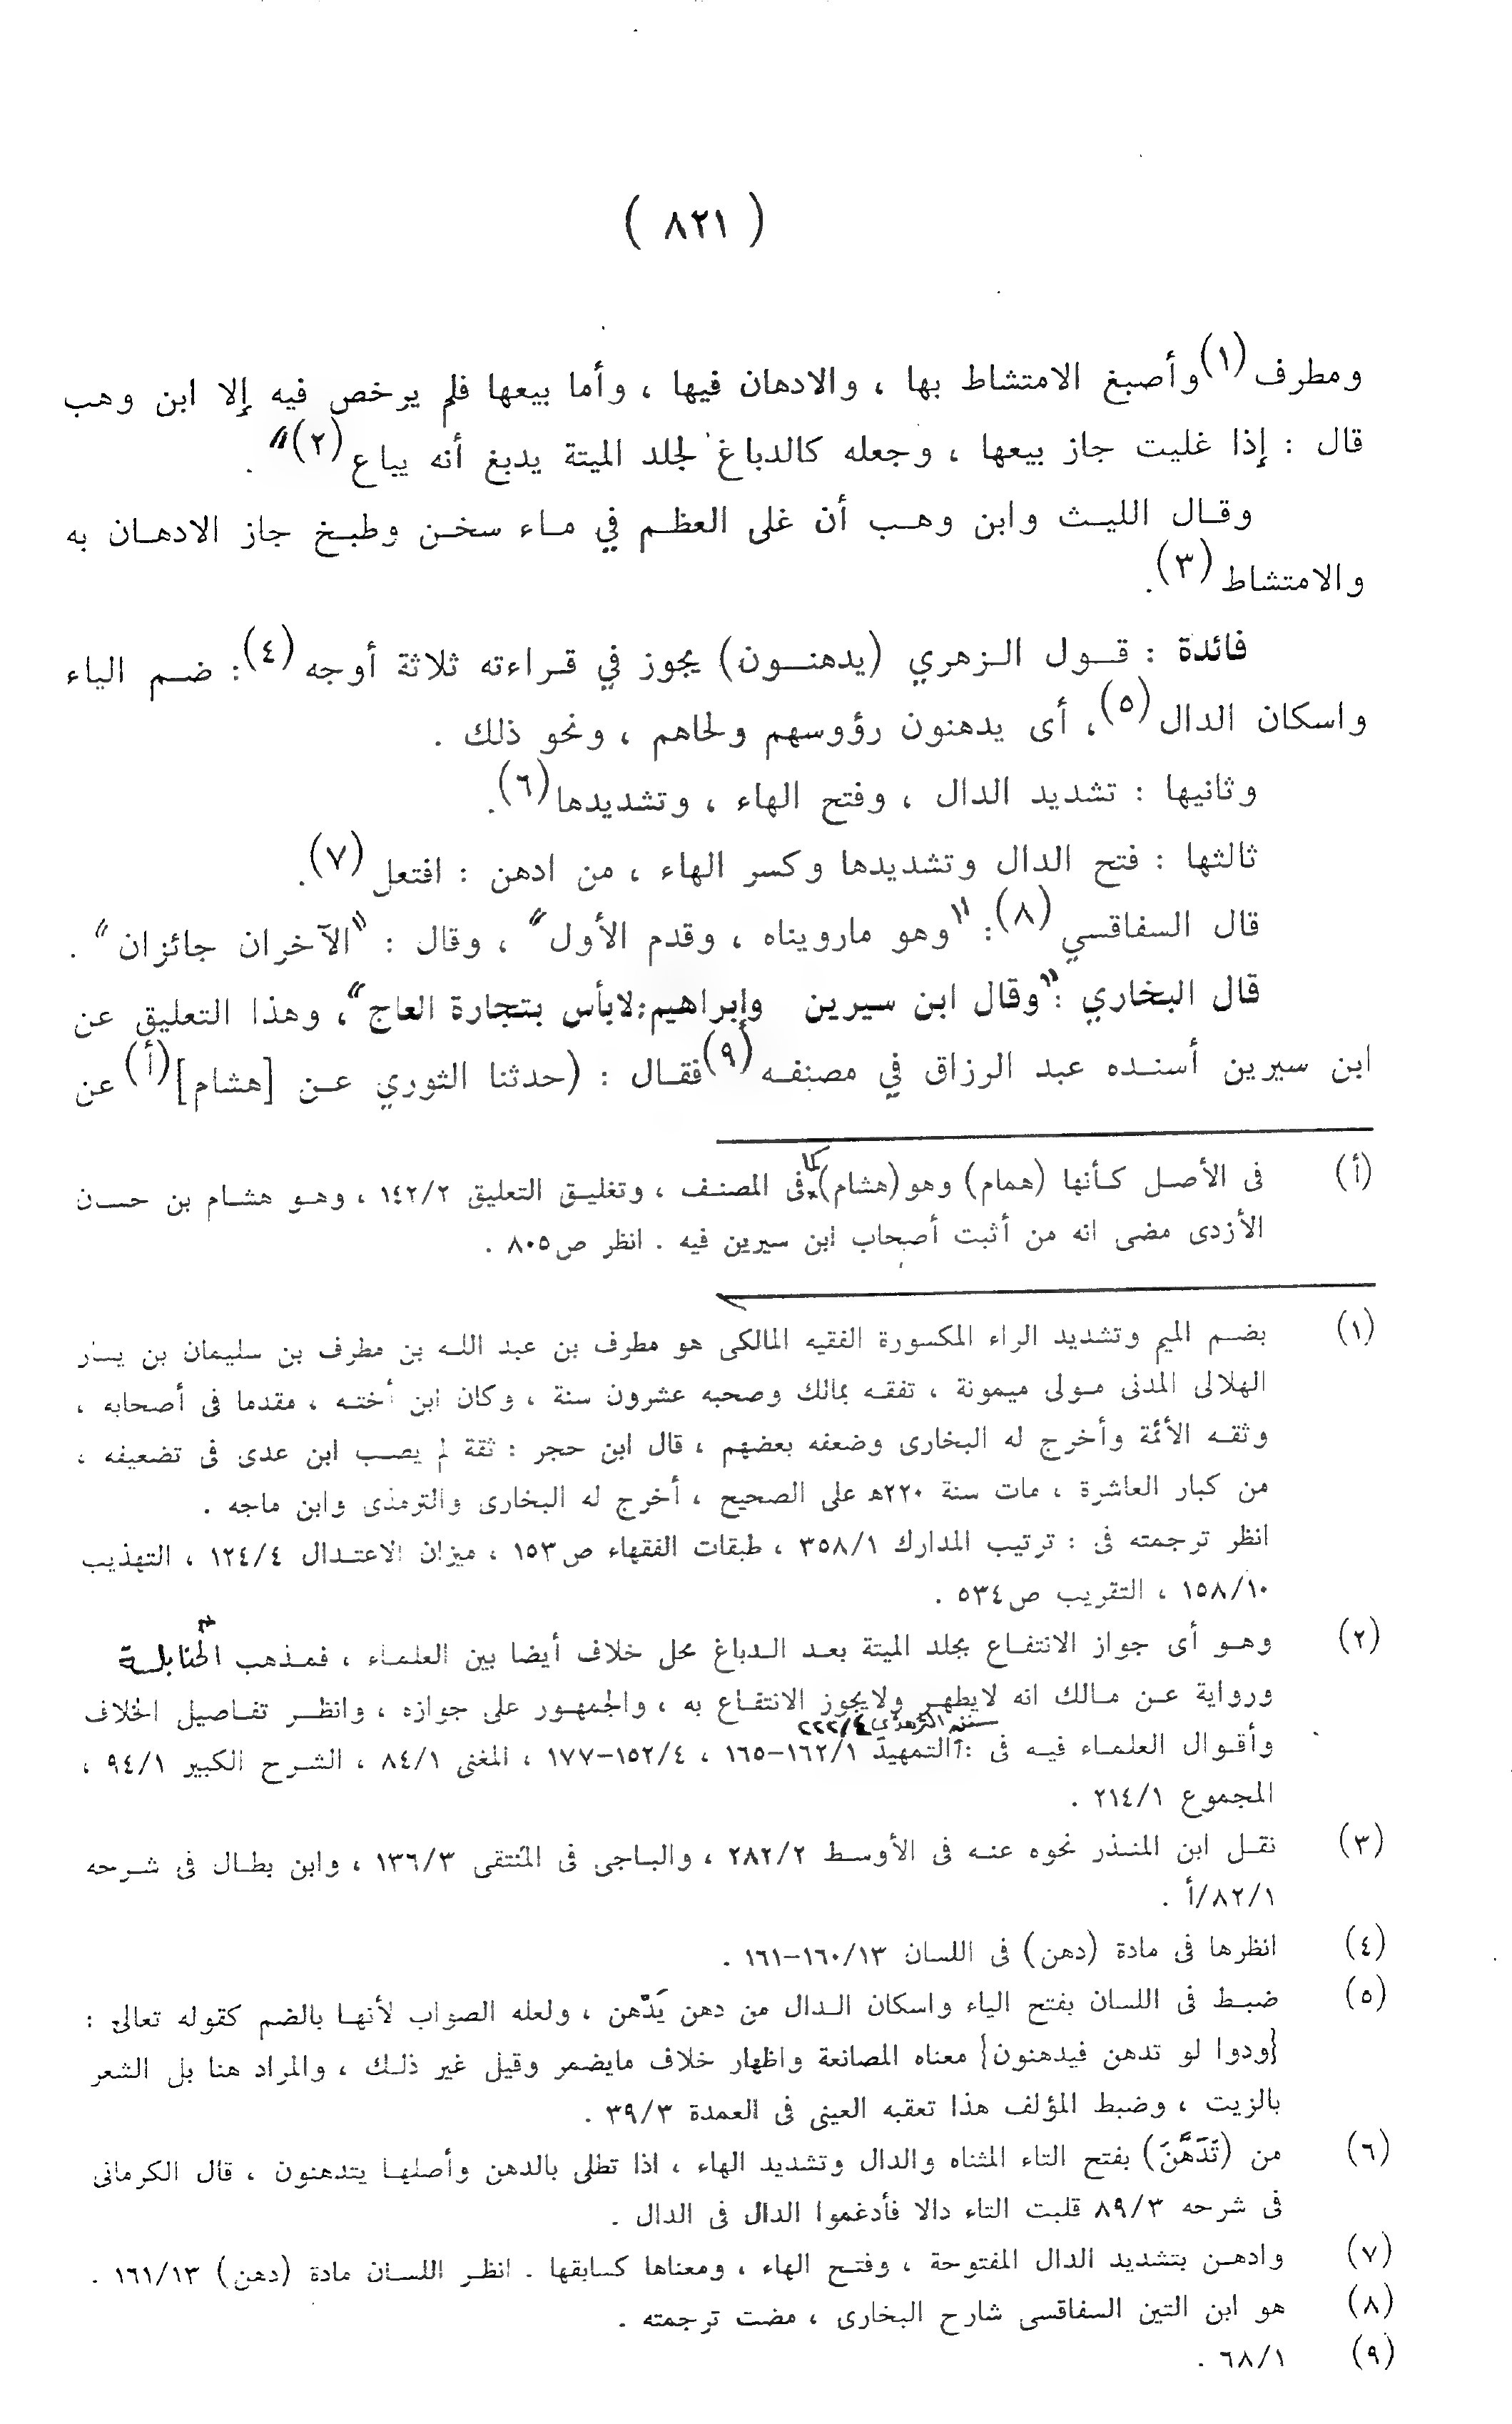 ( ٨٢١ )
ومطرف(١) وأصبغ الامتشاط بها ، والادهان فيها ، وأما بيعها فلم يرخص فيه إلا ابن وهب
قال : إذا غليت جاز بيعها ، وجعله كالدباغ لجلد الميتة يدبغ أنه يباع(٢)" .
وقال الليث وابن وهب أن غلى العظم في ماء سخن وطبخ جاز الادهان به
والامتشاط(٣).
فائدة : قول الزهري (يدهنون) يجوز في قراءته ثلاثة أوجه(٤): ضم الياء
واسكان الدال(٥)، أى يدهنون رؤوسهم ولحاهم ، ونحو ذلك .
وثانيها : تشديد الدال ، وفتح الهاء ، وتشديدها(٦).
ثالثها : فتح الدال وتشديدها وكسر الهاء ، من ادهن : افتعل(٧).
قال السفاقسي(٨): "وهو مارويناه ، وقدم الأول" ، وقال : "الآخران جائزان" .
قال البخاري :"وقال ابن سيرين وإبراهيم:لابأس بتجارة العاج"، وهذا التعليق عن
ابن سيرين أسنده عبد الرزاق في مصنفه(٩) فقال : (حدثنا الثوري عن [هشام](أ) عن
(أ) فى الأصل كأنها (همام) وهو (هشام) كما فى المصنف ، وتغليق التعليق ١٤٢/٢ ، وهو هشام بن حسان
الأزدى مضى انه من أثبت أصحاب ابن سيرين فيه . انظر ص٨٠٥ .
(١) بضم الميم وتشديد الراء المكسورة الفقيه المالكى هو مطرف بن عبد الله بن مطرف بن سليمان بن يسار
الهلالى المدنى مولى ميمونة ، تفقه بمالك وصحبه عشرون سنة ، وكان ابن أخته ، مقدما فى أصحابه ،
وثقه الأئمة وأخرج له البخارى وضعفه بعضهم ، قال ابن حجر : ثقة لم يصب ابن عدى فى تضعيفه ،
من كبار العاشرة ، مات سنة ٢٢٠ه على الصحيح ، أخرج له البخارى والترمذى وابن ماجه .
انظر ترجمته فى : ترتيب المدارك ٣٥٨/١ ، طبقات الفقهاء ص١٥٣ ، ميزان الاعتدال ١٢٤/٤ ، التهذيب
١٥٨/١٠ ، التقريب ص٥٣٤ .
(٢) وهو أى جواز الانتفاع بجلد الميتة بعد الدباغ محل خلاف أيضا بين العلماء ، فمذهب الحنابلة
ورواية عن مالك انه لايطهر ولايجوز الانتفاع به ، والجمهور على جوازه ، وانظر تفاصيل الخلاف
وأقوال العلماء فيه فى : سنن الترمذى ٢٢٢/٤ التمهيد ١٦٢/١-١٦٥ ، ١٥٢/٤-١٧٧ ، المغنى ٨٤/١ ، الشرح الكبير ٩٤/١ ،
المجموع ٢١٤/١ .
(٣) نقل ابن المنذر نحوه عنه فى الأوسط ٢٨٢/٢ ، والباجى فى المنتقى ١٣٦/٣ ، وابن بطال فى شرحه
٨٢/١/أ .
(٤) انظرها فى مادة (دهن) فى اللسان ١٦٠/١٣-١٦١ .
(٥) ضبط فى اللسان بفتح الياء واسكان الدال من دهن يَدْهن ، ولعله الصواب لأنها بالضم كقوله تعالى :
{ودوا لو تدهن فيدهنون} معناه المصانعة واظهار خلاف مايضمر وقيل غير ذلك ، والمراد هنا بل الشعر
بالزيت ، وضبط المؤلف هذا تعقبه العينى فى العمدة ٣٩/٣ .
(٦) من (تَدَهَّنَ) بفتح التاء المثناه والدال وتشديد الهاء ، اذا تطلى بالدهن وأصلها يتدهنون ، قال الكرمانى
فى شرحه ٨٩/٣ قلبت التاء دالا فأدغموا الدال فى الدال .
(٧) وادهن بتشديد الدال المفتوحة ، وفتح الهاء ، ومعناها كسابقها . انظر اللسان مادة (دهن) ١٦١/١٣ .
(٨) هو ابن التين السفاقسى شارح البخارى ، مضت ترجمته .
(٩) ٦٨/١ .